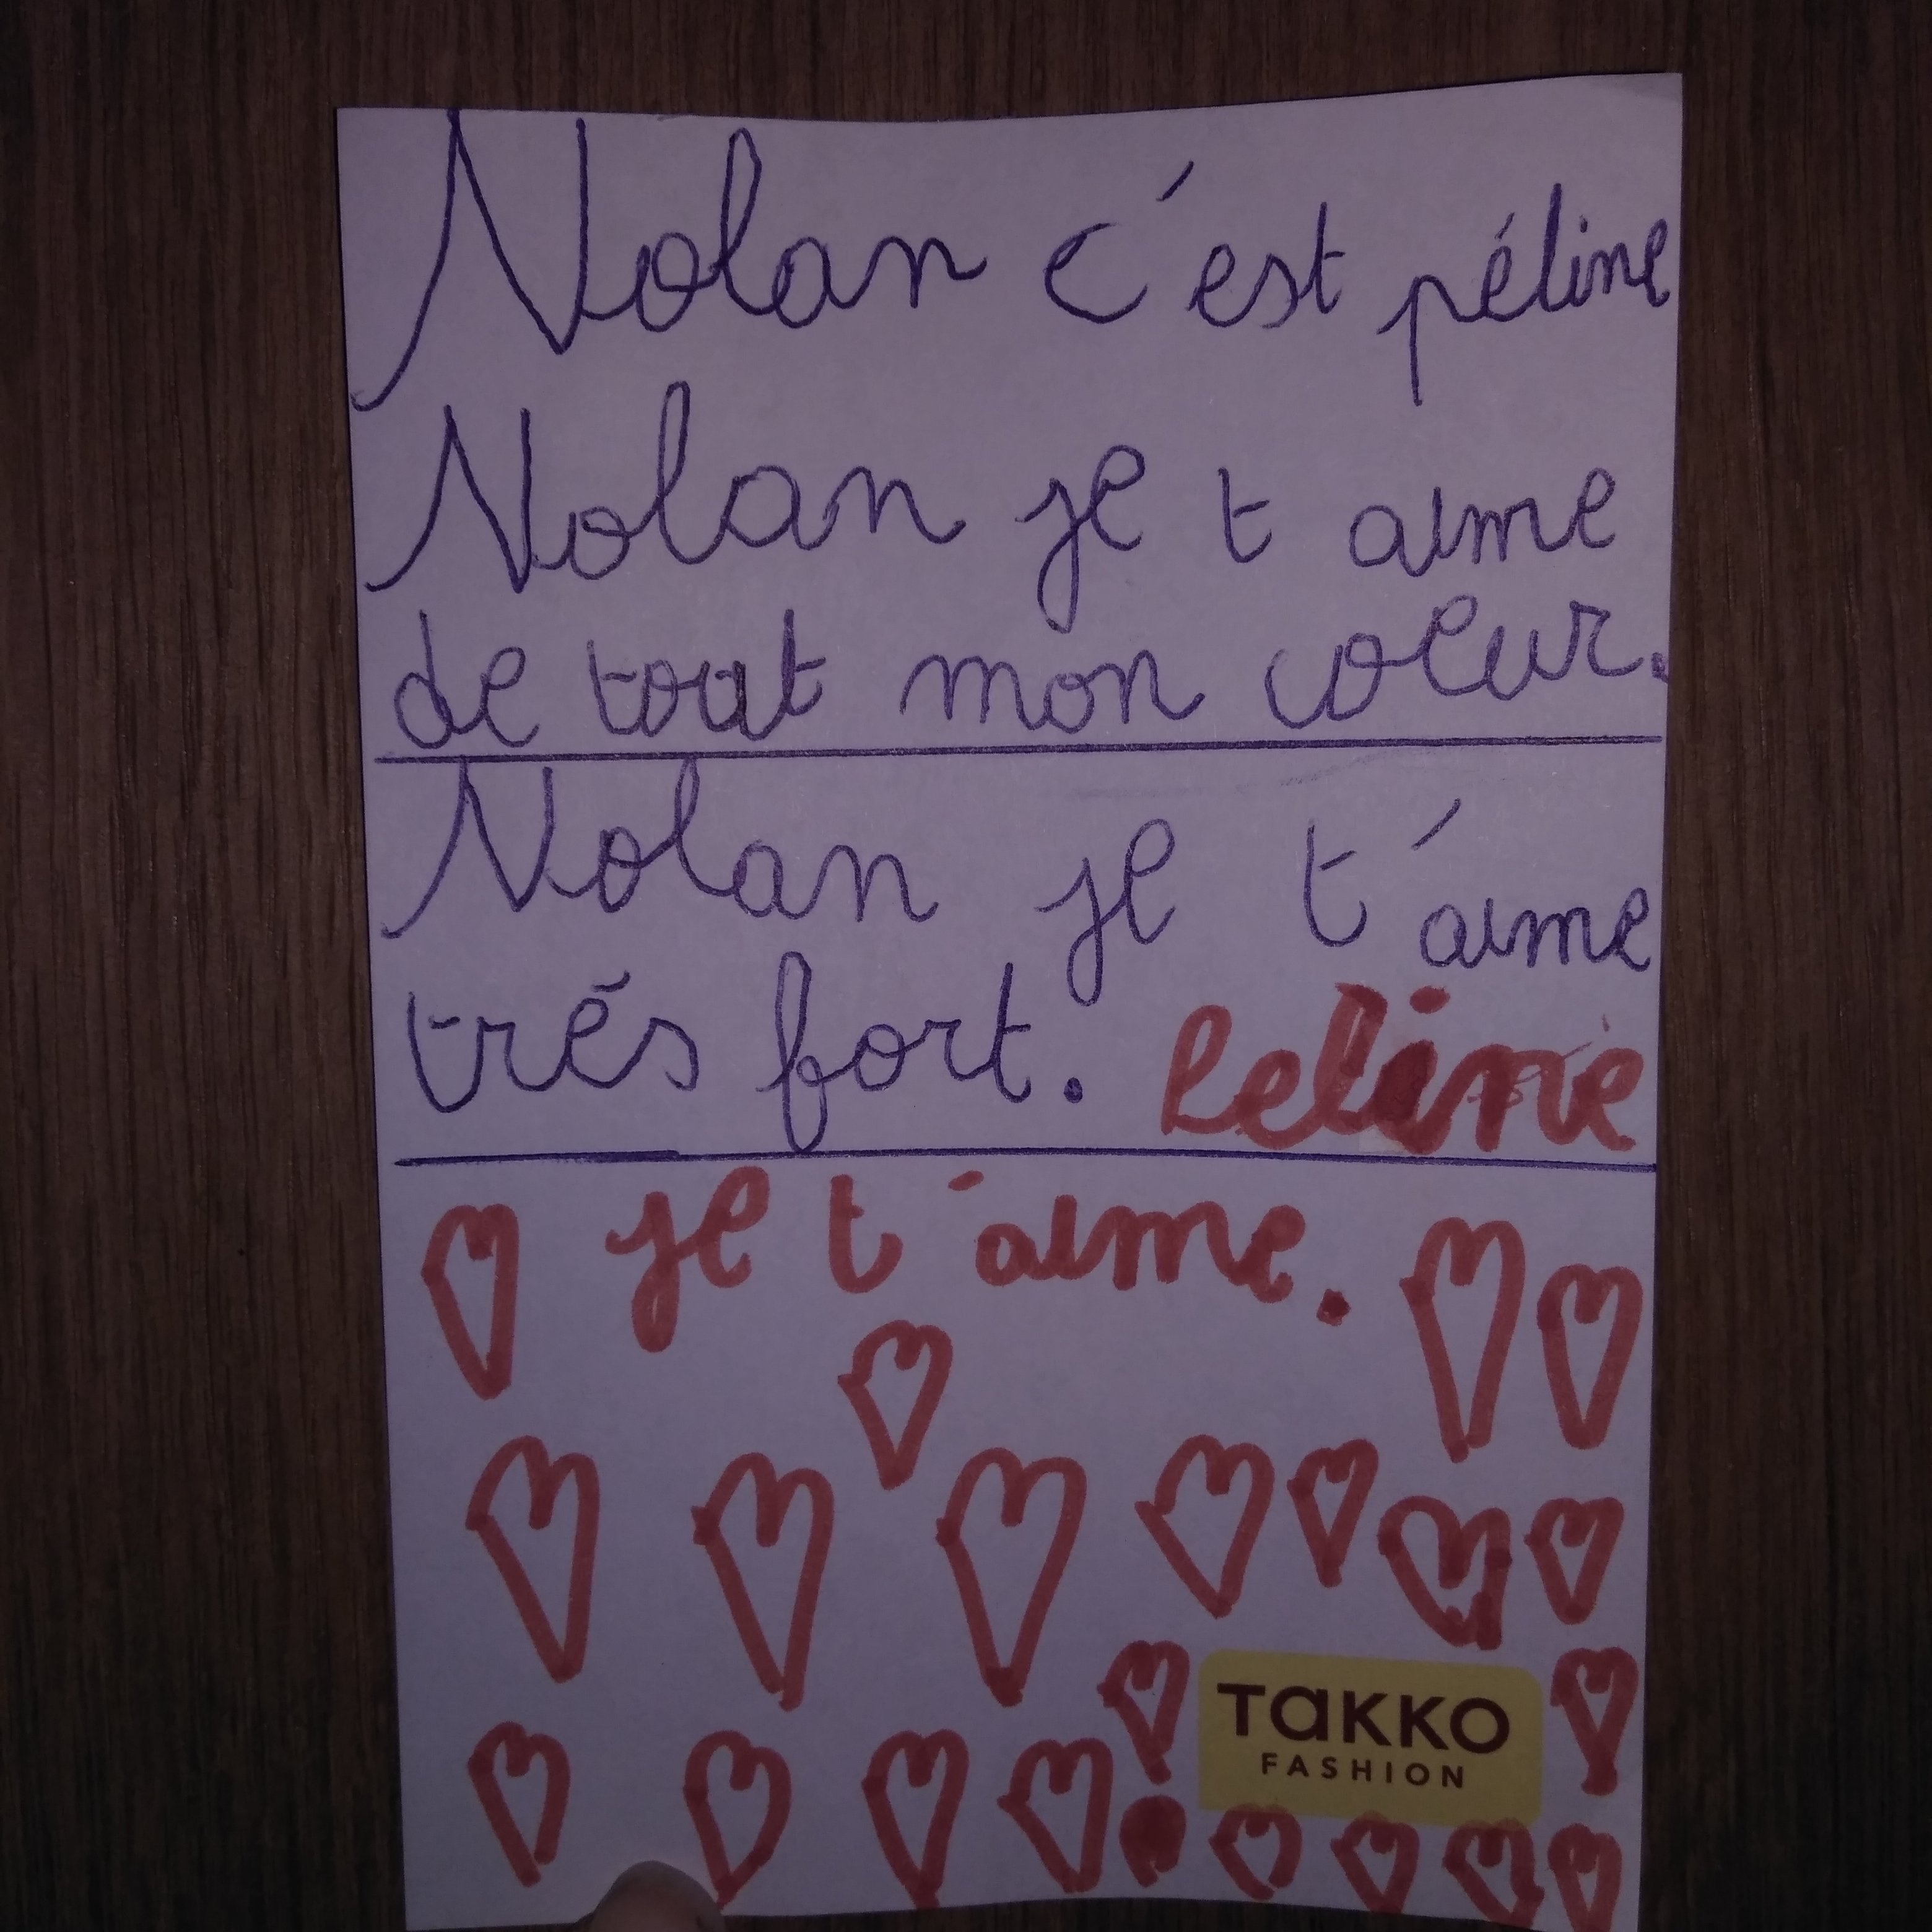 Nolan c'est péline
Nolan je t aime
de tout mon coeur.
Nolan je t'aime
trés fort. Peline
je t'aime.
TAKKO
FASHION